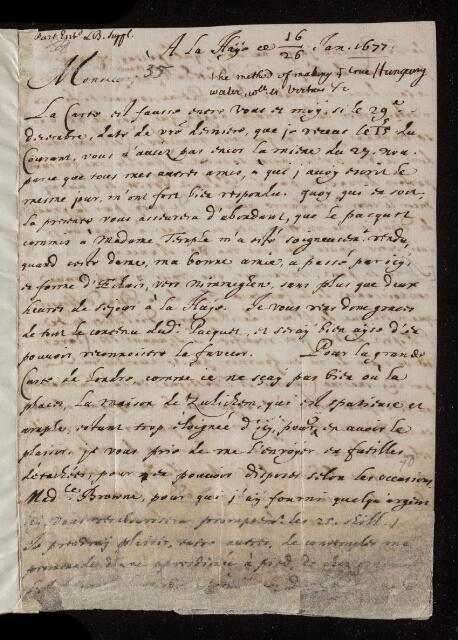 Part Ent.d L.B. Suppl.
A La Haye ce 16/26 Jan. 1677.
Monsieur 35
the method of making ye true Hungary
water, with its Vertues &c
La Carte est fausse entre vous et moy, si le 29.e
Decembre, date de vre derniere, que je receus le 15 du
Courant, vous n'aviez pas encor la miene du 27. Nov.
parce que tous mes autres amis, à qui j'avoy escrit le
mesme jour, m'ont fort bien respondu. Quoy qui en soit,
la presente vous asseurera d'abondant, que le pacquet
commis à Madame Temple m'a esté soigneusemt. rendu,
quand ceste dame, ma bonne amie, a passé par icy,
en forme d'Eclair, vers Nimmeghen, sans plus que deux
heures de sejour à la Haye. Je vous rens donq graces
de tout le contenu dud. Pacquet, et seray bien ayse d'en
pouvoir reconnoistre la faveur. Pour la grande
Carte de Londre, comme je ne sçay pas bien où la
placer, la maison de Zulichem, qui est spatieuse et
ample, estant trop eloignée d'icy, pour en avoir le
plaisir, je vous prie de me l'envoyer en fueilles
detachées, pour en pouvoir disposer selon les occasions.
Mad.lle Browne, pour qui j'ay fourni quelque argent
icy, vous remboursera promptemt. les 25. schill.
Je prendray plaisir, entre autres, de contempler ma
promenade d'une apresdinée à pied, de